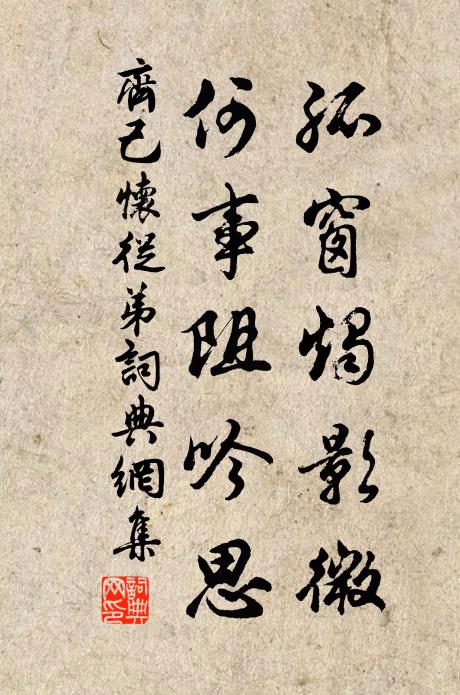 孤窗燭影微
何事阻吟思
齊己懷從弟詞典網集
詞典網印